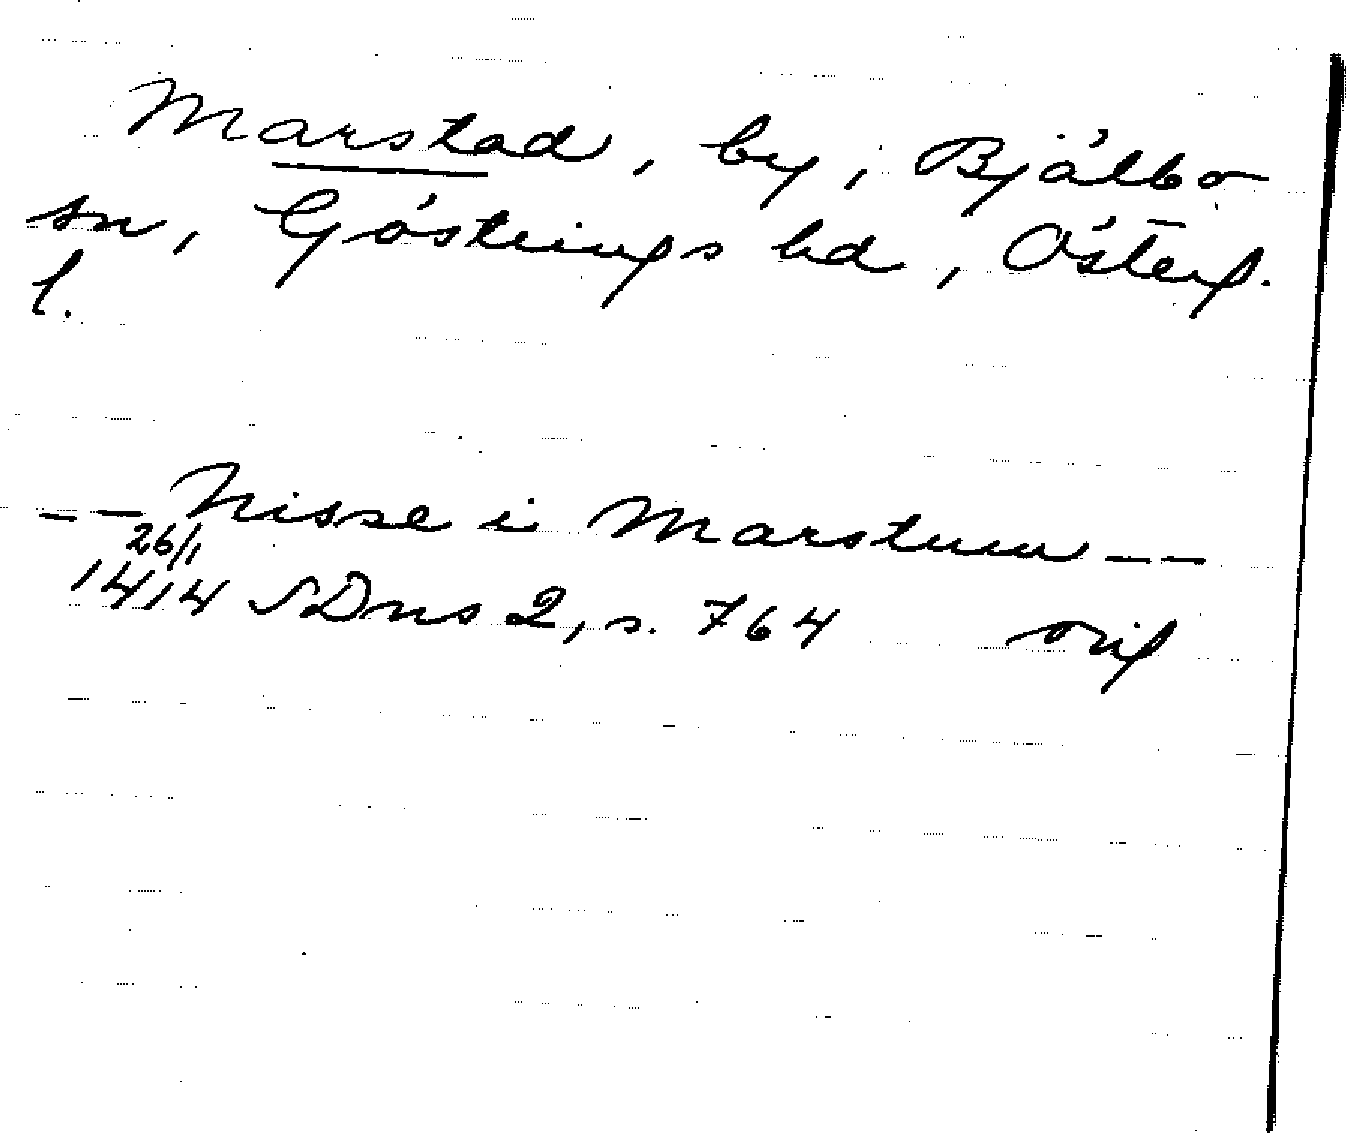 Marstad, by, Bjälbo
sn, Göstrings hd, Österg.
l.
-- Nisse i Marstum --
26/1
1414 SDns 2, s. 764 orig